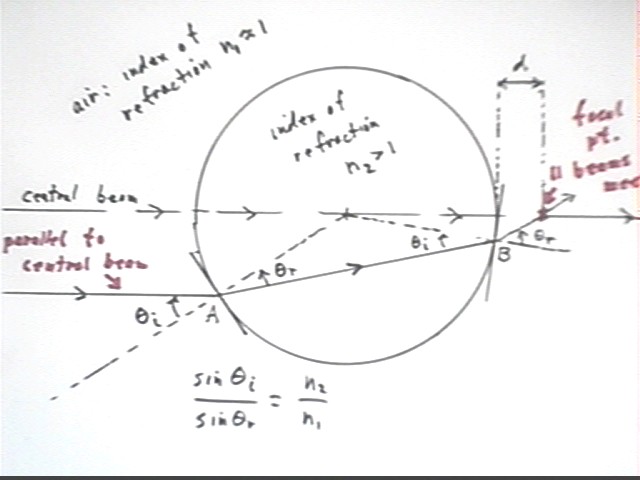 air: index of
refraction n₁≈1
index of
refraction
n₂>1
d
focal
pt.
11 beams
mee
central beam
parallel to
central beam
θi
θr
B
θr
θi
A
sin θi / sin θr = n₂ / n₁